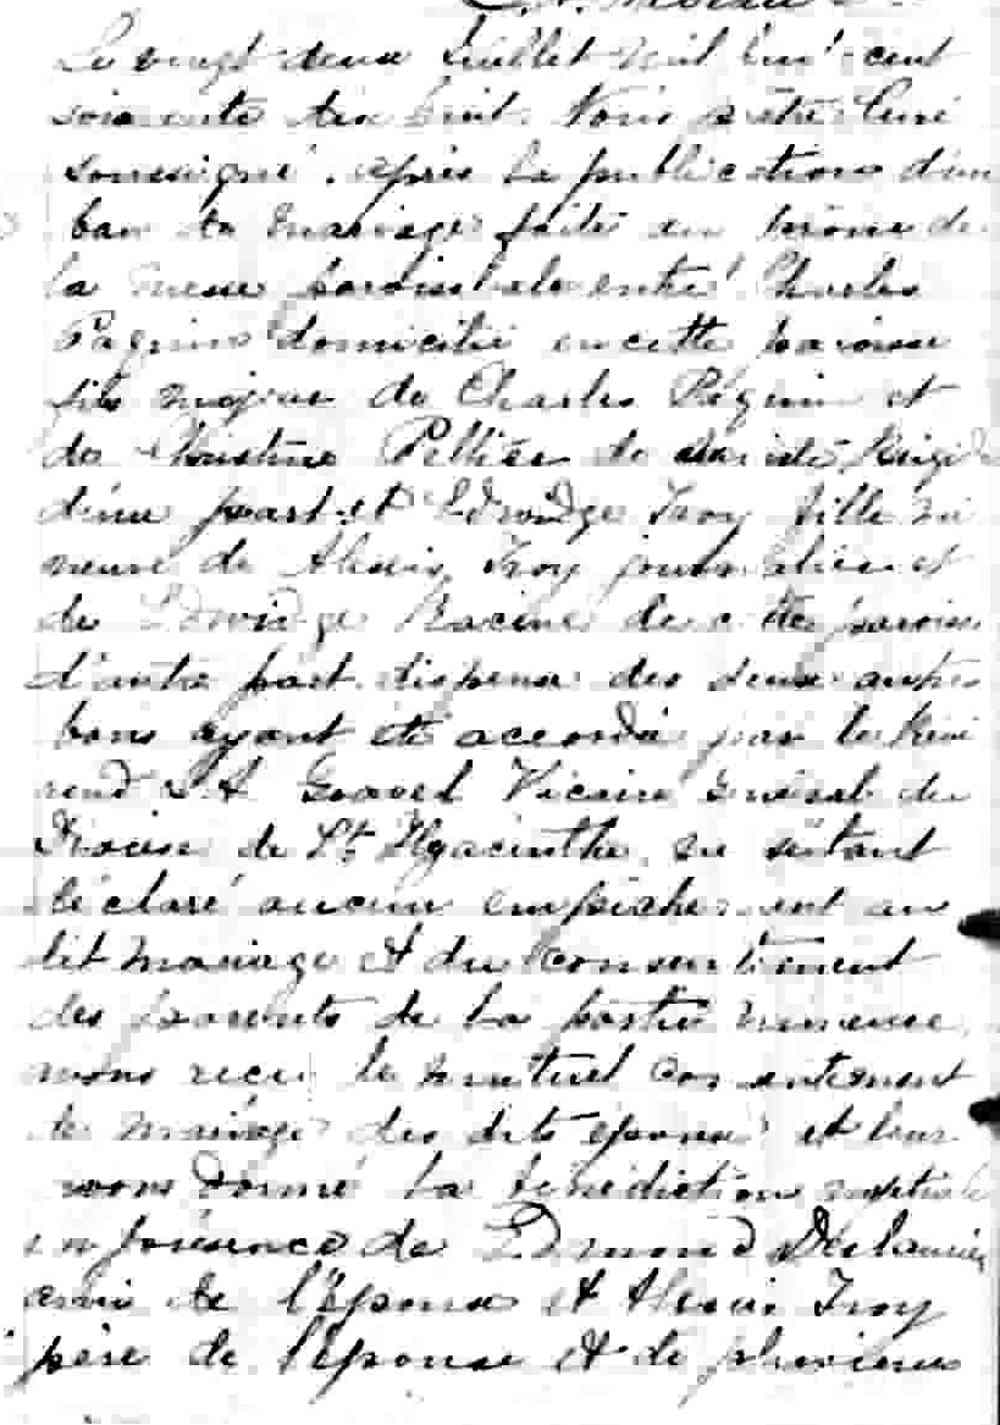 Le vingt deux Juillet mil huit cent
soixante dix huit Nous prêtre Curé
soussigné, après la publication d'un
ban de mariage faite au prône de
la messe paroissiale entre Charles
Paquin domicilié en cette paroisse
fils majeur de Charles Paquin et
de Christine Pelletier de
d'une part et Edwidge Troy fille mi
neure de Alexis Troy journalier et
de Edwidge Racine de cette paroisse
d'autre part dispense des deux autres
bans ayant été accordée par le Révé
rend Gravel Vicaire Général du
Diocèse de St Hyacinthe, ne s'étant
déclaré aucun empêchement au
dit mariage et du consentement
des parents de la partie mineure,
avons reçu le mutuel consentement
de mariage des dits époux et leur
avons donné la bénédiction nuptiale
en présence de Edmond Deslauriers
ami de l'époux et Alexis Troy
père de l'épouse et de plusieurs